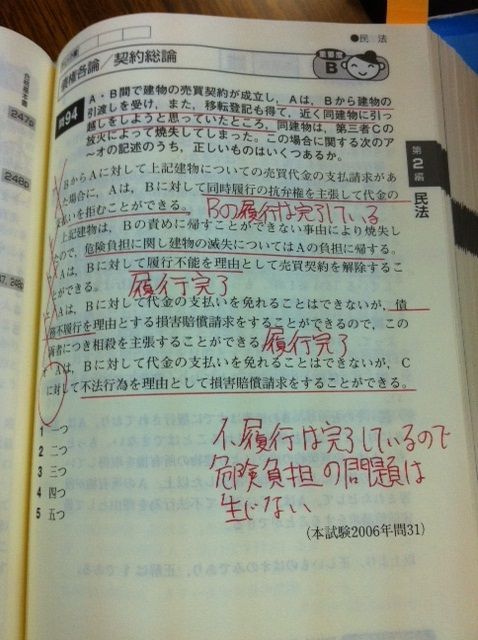 ●民 法
債権各論／契約総論
重要度
B
問94
A・B間で建物の売買契約が成立し、Aは、Bから建物の
引渡しを受け、また、移転登記も得て、近く同建物に引っ
越しをしようと思っていたところ、同建物は、第三者Cの
放火によって焼失してしまった。この場合に関する次のア
～オの記述のうち、正しいものはいくつあるか。
BからAに対して上記建物についての売買代金の支払請求があ
た場合に、Aは、Bに対して同時履行の抗弁権を主張して代金の
支払いを拒むことができる。
Bの履行は完了している
上記建物は、Bの責めに帰すことができない事由により焼失し
ので、危険負担に関し建物の滅失についてはAの負担に帰する。
Aは、Bに対して履行不能を理由として売買契約を解除するこ
とができる。
履行完了
Aは、Bに対して代金の支払いを免れることはできないが、債
務不履行を理由とする損害賠償請求をすることができるので、この
両者につき相殺を主張することができる。
履行完了
Aは、Bに対して代金の支払いを免れることはできないが、C
に対して不法行為を理由として損害賠償請求をすることができる。
1 一つ
2 二つ
3 三つ
4 四つ
5 五つ
イ、履行は完了しているので
危険負担の問題は
生じない
(本試験2006年問31)
第2編
民法
247p
248p